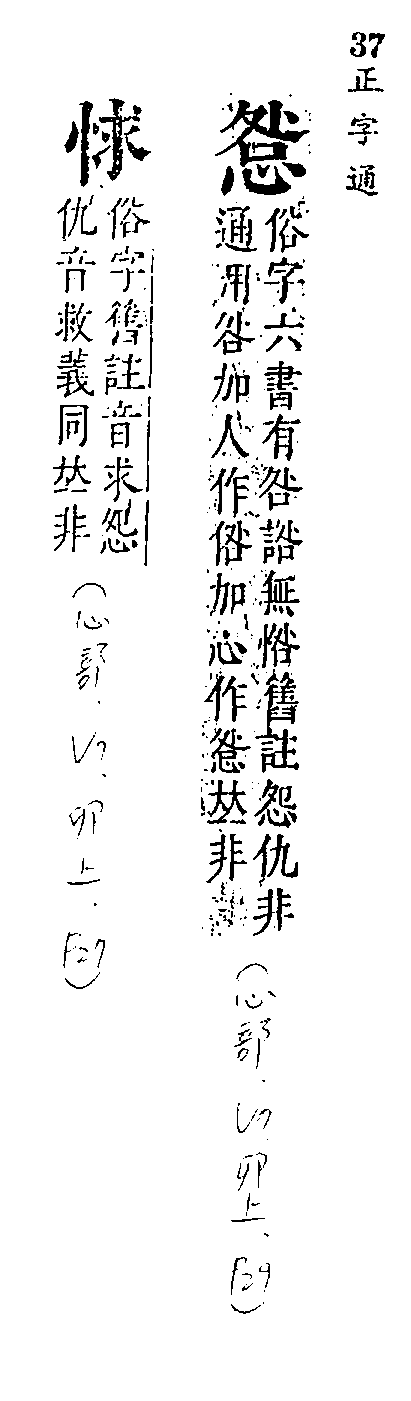 37
正字通
慦
俗字六書有咎諮無㤥舊註怨仇非
通用咎加人作俗加心作慦𠀤非
(心部.V7.卯上.P29)
㤹
俗字舊註音求怨
仇音救義同𠀤非
(心部.V7.卯上.P27)